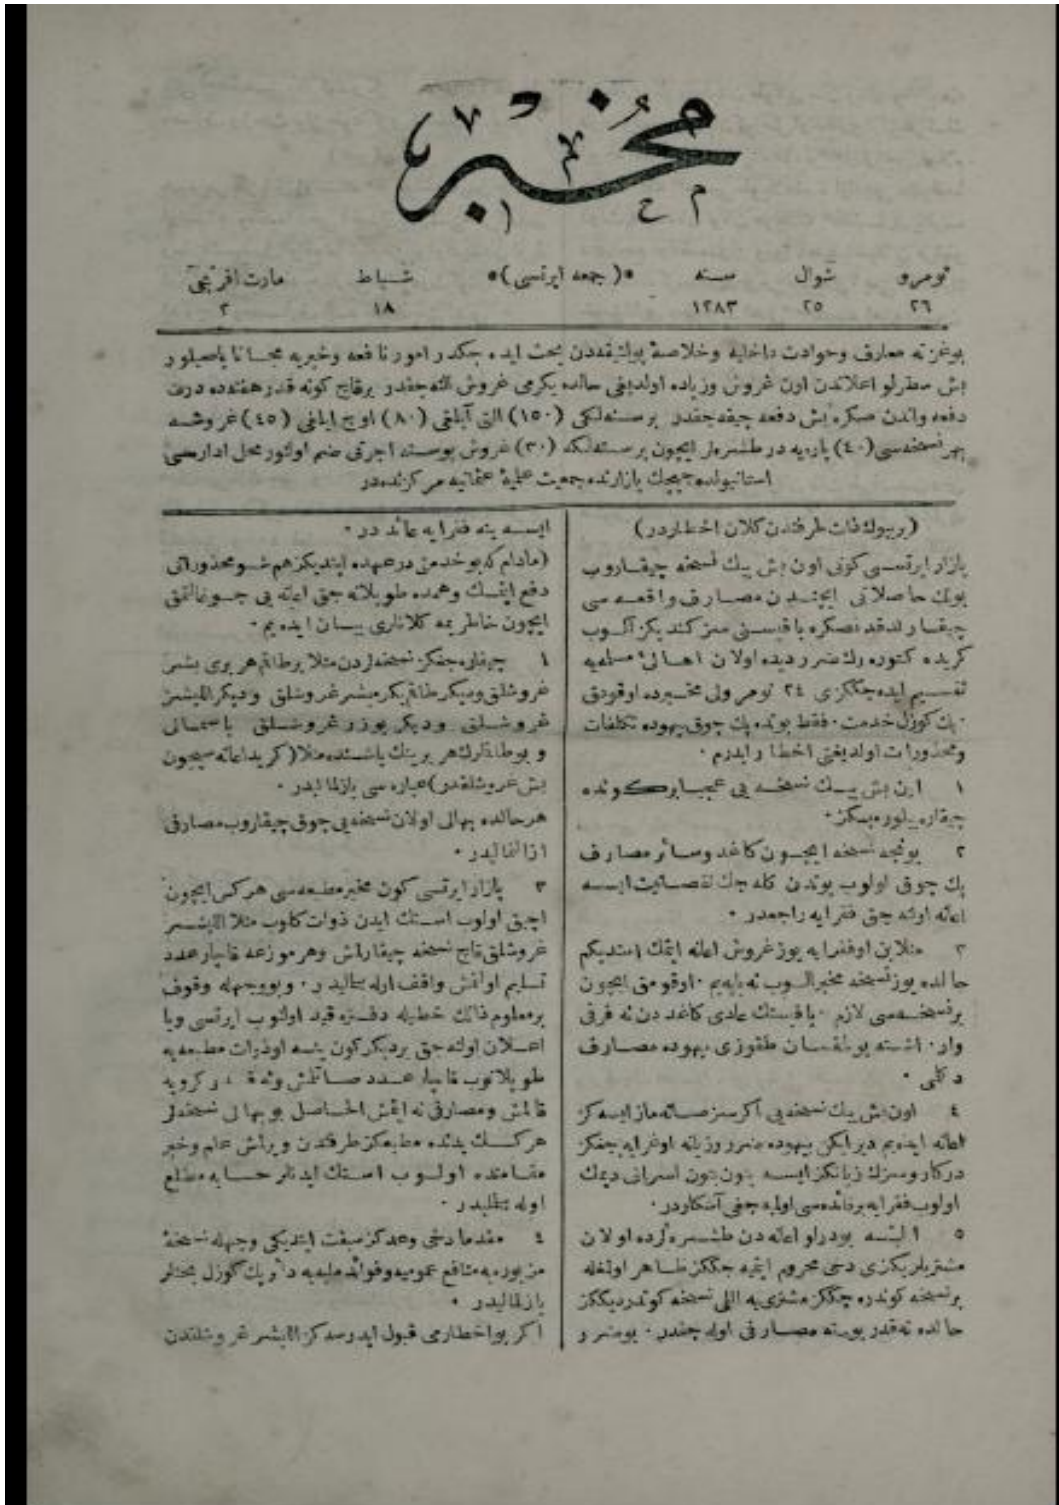 مخبر
نومرو شوال سنه •(جمعه ایرتسی)• شباط مارت افرنجی
٢٦ ٢٥ ١٢٨٣ ١٨ ٢
بوغزته معارف وحوادث داخلیه وخلاصهٔ پولتیقه‌دن بحث ایده جکدر امور نافعه وخیریه مجانا یاصیلور
بش سطرلو اعلاندن اون غروش وزیاده اولدیغی حالده یکرمی غروش النه جقدر برقاچ کونه قدر هفته‌ده درت
دفعه واندن صکره بش دفعه چیقه جقدر برسنه‌لکی (١٥٠) التی آیلغی (٨٠) اوچ ایلغی (٤٥) غروشه
بهر نسخه‌سی (٤٠) پاره‌یه در طشره‌لر ایچون برسنه‌لکه (٣٠) غروش پوسته اجرتی ضم اولنور محل اداره‌سی
استانبولده چیچك بازارنده جمعیت علمیهٔ عثمانیه مرکزنده‌در
(بریوك ذات طرفندن کلان اخطاردر)
پازار ایرتسی کونی اون بش بیك نسخه چیقاروب
بونك حاصلاتی ایچندن مصارف واقعه سی
چیقارلدقدنصکره باقیسنی سز کندیکز آلوب
کریده کتوره رك ضرردیده اولان اهالئ مسلمه‌یه
تقسیم ایده جککزی ٢٤ نومرولی مخبرده اوقودق
پك کوزل خدمت • فقط بونده پك چوق بیهوده تکلفات
ومحذورات اولدیغنی اخطار ایدرم •
١ اون بش بیك نسخه یی عجبا برکونده
چیقاره بیلورمیسکز •
٢ بونجه نسخه ایچون کاغد وسائر مصارف
پك چوق اولوب بوندن کله جك نقصانیت ایسه
اعانه اولنه جق فقرایه راجعدر •
٣ مثلابن اوفقرایه یوز غروش اعانه ایتمك استدیکم
حالده یوز نسخه مخبر الوب نه یاپه‌یم • اوقومق ایچون
برنسخه‌سی لازم • باقیسنك عادی کاغددن نه فرقی
وار • اشته بوطقسان طقوزی بیهوده مصارف
دکلمی •
٤ اون بش بیك نسخه‌یی اکر سز صاته‌مازایسه‌کز
اعانه ایده‌یم دیرایکن بیهوده ضرر وزیانه اوغرایه جغکز
درکار وسزك زیانکز ایسه بتون بتون اسرافی دیمك
اولوب فقرایه برفائده‌سی اولمیه جغی آشکاردر •
٥ البته بودرلو اعانه‌دن طشره‌لرده اولان
مشتریلریکزی دخی محروم ایتمیه جککز ظاهر اولمغله
برنسخه کوندره جککز مشتری‌یه اللی نسخه کوندردیککز
حالده نه‌قدر پوسته مصارفی اوله جقدر • بوضرر
ایسه ینه فقرایه عائددر •
(مادام که بوخدمتی درعهده ایتدیکز هم شو محذوراتی
دفع ایتمك وهمده طوپلانه جق اعانه یی چوغالتمق
ایچون خاطریمه کلانلری بیان ایده‌یم •
١ چیقاره جغکز نسخه‌لردن مثلا برطاقم هربری بشر
غروشلق ودیکر طاقم یکرمیشر غروشلق ودیکر اللیشر
غروشلق ودیکر یوزر غروشلق یاصمالی
وبوطاقلرك هربرینك باشنده مثلا (کرید اعانه سیچون
بش غروشلقدر) عباره سی یازلمالیدر •
هرحالده بهالی اولان نسخه‌یی چوق چیقاروب مصارفی
ازالتمالیدر •
٣ پازار ایرتسی کون مخبر مطبعه‌سی هرکس ایچون
اچیق اولوب استك ایدن ذوات کلوب مثلا اللیشر
غروشلق قاچ نسخه چیقارلمش وهر موزعه قاچار عدد
تسلیم اولنمش واقف اوله بیلملیدر • وبووجهله وقوف
برمعلوم ذاتك خطیله دفتره قید اولنوب ایرتسی ویا
اعلان اولنه جق بردیکر کون ینه اوذوات مطبعه‌یه
طوپلانوب قاچار عدد صاتلمش ونه‌قدر کرویه
قالمش ومصارفی نه ایتمش الحاصل بوبهالی نسخه‌لر
هرکسك یدنده مطبعه‌کز طرفندن ویرلمش علم وخبر
مقامنده اولوب استك ایدنلر حسابه مطلع
اوله بیلملیدر •
٤ مقدما دخی وعدکز سبقت ایتدیکی وجهله نسخهٔ
مزبوره‌یه منافع عمومیه وفوائد ملیه‌یه دائر پك کوزل بحثلر
یازلمالیدر •
اکر بواخطارمی قبول ایدرسه‌کز اللیشر غروشلقندن